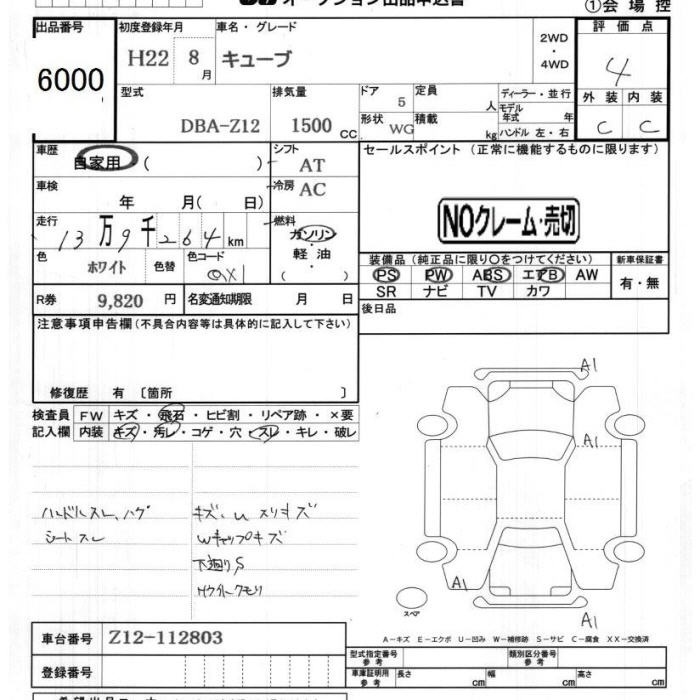 オークション出品申込書
①会場控
出品番号
6000
初度登録年月
H22 8月
車名・グレード
キューブ
2WD
・
4WD
評価点
4
外装 内装
C C
型式
DBA-Z12
排気量
1500 CC
ドア
5
形状 WG
定員
人
積載
kg
ディーラー・並行
モデル年式 年
ハンドル 左・右
車歴
自家用 ( )
シフト
AT
車検
年 月( 日)
冷房 AC
走行
13万9千264km
燃料
ガソリン
・
軽油
( )
色
ホワイト
色替
色コード
QX1
R券 9,820 円
名変通知期限 月 日
セールスポイント(正常に機能するものに限ります)
NOクレーム・売切
装備品(純正品に限り○をつけてください)
PS PW ABS エアB AW
SR ナビ TV カワ
新車保証書
有・無
後日品
注意事項申告欄(不具合内容等は具体的に記入して下さい)
修復歴 有 〔箇所 〕
検査員記入欄
FW キズ・飛石・ヒビ割・リペア跡・×要
内装 キズ・汚レ・コゲ・穴・スレ・キレ・破レ
ハンドルスレ、ハゲ
シートスレ
キズ、U スリキズ
Wキャップキズ
下廻りS
Hライトクモリ
A1
A1
A1
A1
スペア
A-キズ E-エクボ U-凹み W-補修跡 S-サビ C-腐食 XX-交換済
車台番号 Z12-112803
登録番号
型式指定番号
参考
類別区分番号
参考
車庫証明用
参考
長さ cm 幅 cm 高さ cm